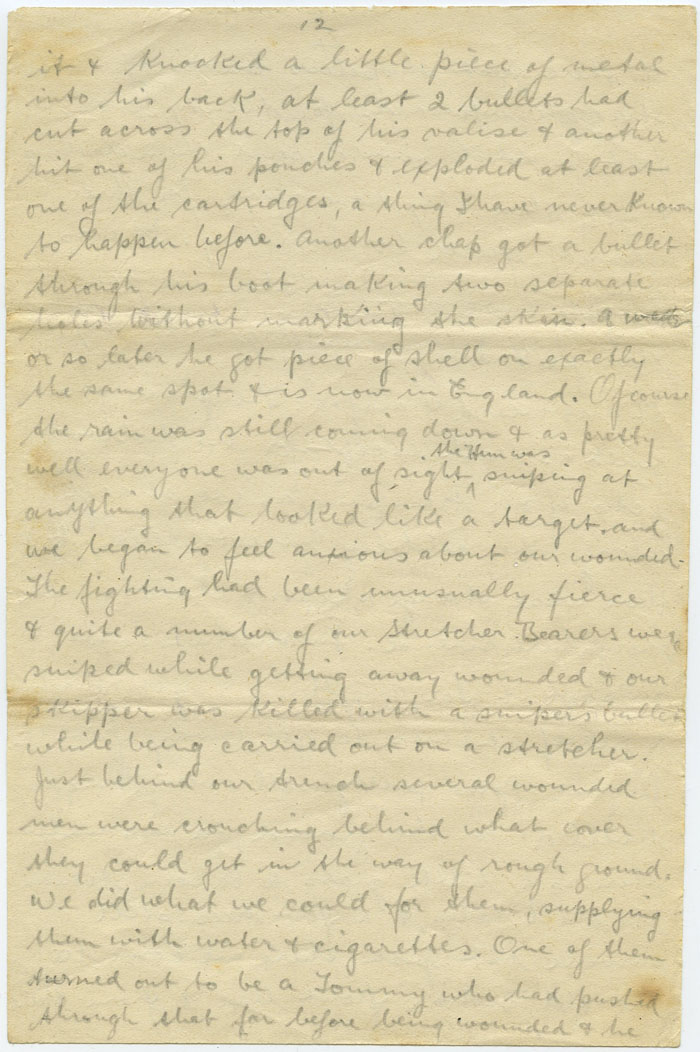 12
it & Knocked a little piece of metal
into his back, at least 2 bullets had
cut across the top of his valise & another
hit one of his pouches & exploded at least
one of the cartridges, a thing I have never Known
to happen before. Another chap got a bullet
through his boot making two separate
holes without marking the skin. A week
or so later he got piece of shell on exactly
the same spot & is now in England. Of course
the rain was still coming down & as pretty
the Hun was
well everyone was out of sight, sniping at
anything that looked like a target, and
we began to feel anxious about our wounded.
The fighting had been unusually fierce
& quite a number of our Stretcher Bearers were
sniped while getting away wounded & our
skipper was Killed with a sniper's bullet
while being carried out on a stretcher.
Just behind our trench several wounded
men were crouching behind what cover
they could get in the way of rough ground.
We did what we could for them, supplying
them with water & cigarettes. One of them
turned out to be a Tommy who had pushed
through that far before being wounded & he